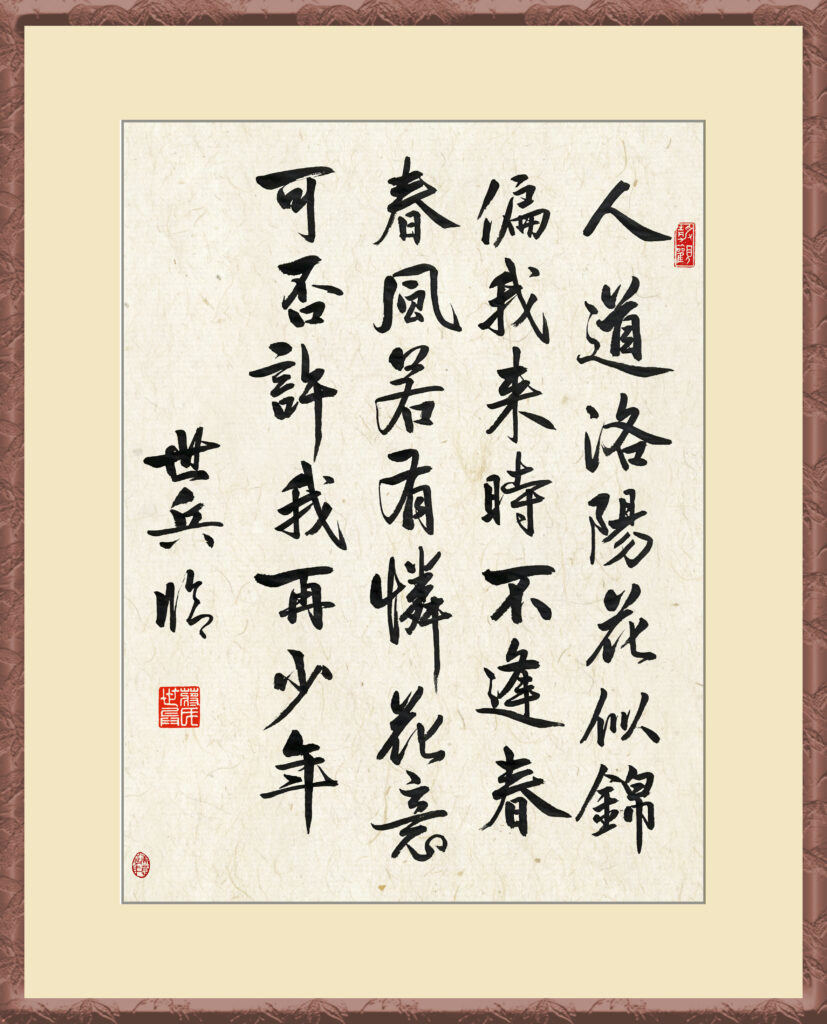 人道洛陽花似錦
偏我来時不逢春
春風若有憐花意
可否許我再少年
世兵臨